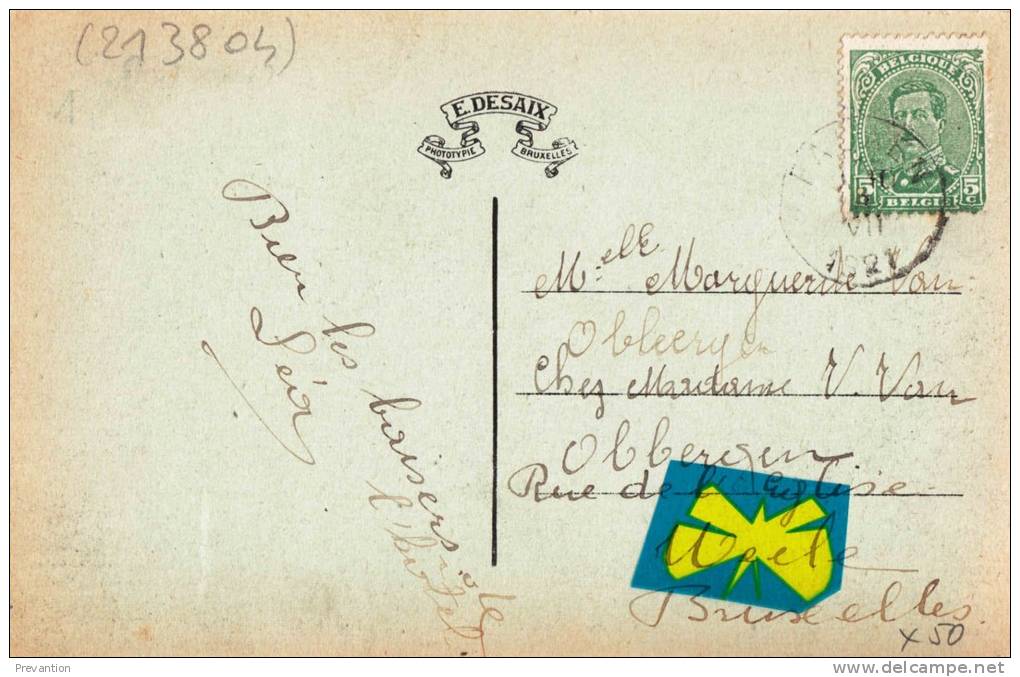 (213804)
1
E. DESAIX
PHOTOTYPIE BRUXELLES
BELGIQUE
5 5
C C
BELGIE
VII
1921
Bien les baisers
Léa
Melle Marguerite Van
Obbergen
Chez Madame V. Van
Obbergen
Rue de l'Eglise
Bruxelles.
x50
Prevantion
delcampe.net